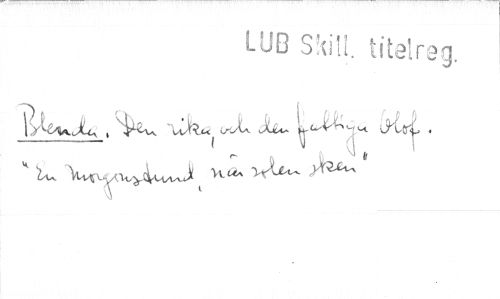 LUB Skill. titelreg.
Blenda. Den rika, och den fattiga Olof.
"En morgonstund, när solen sken"